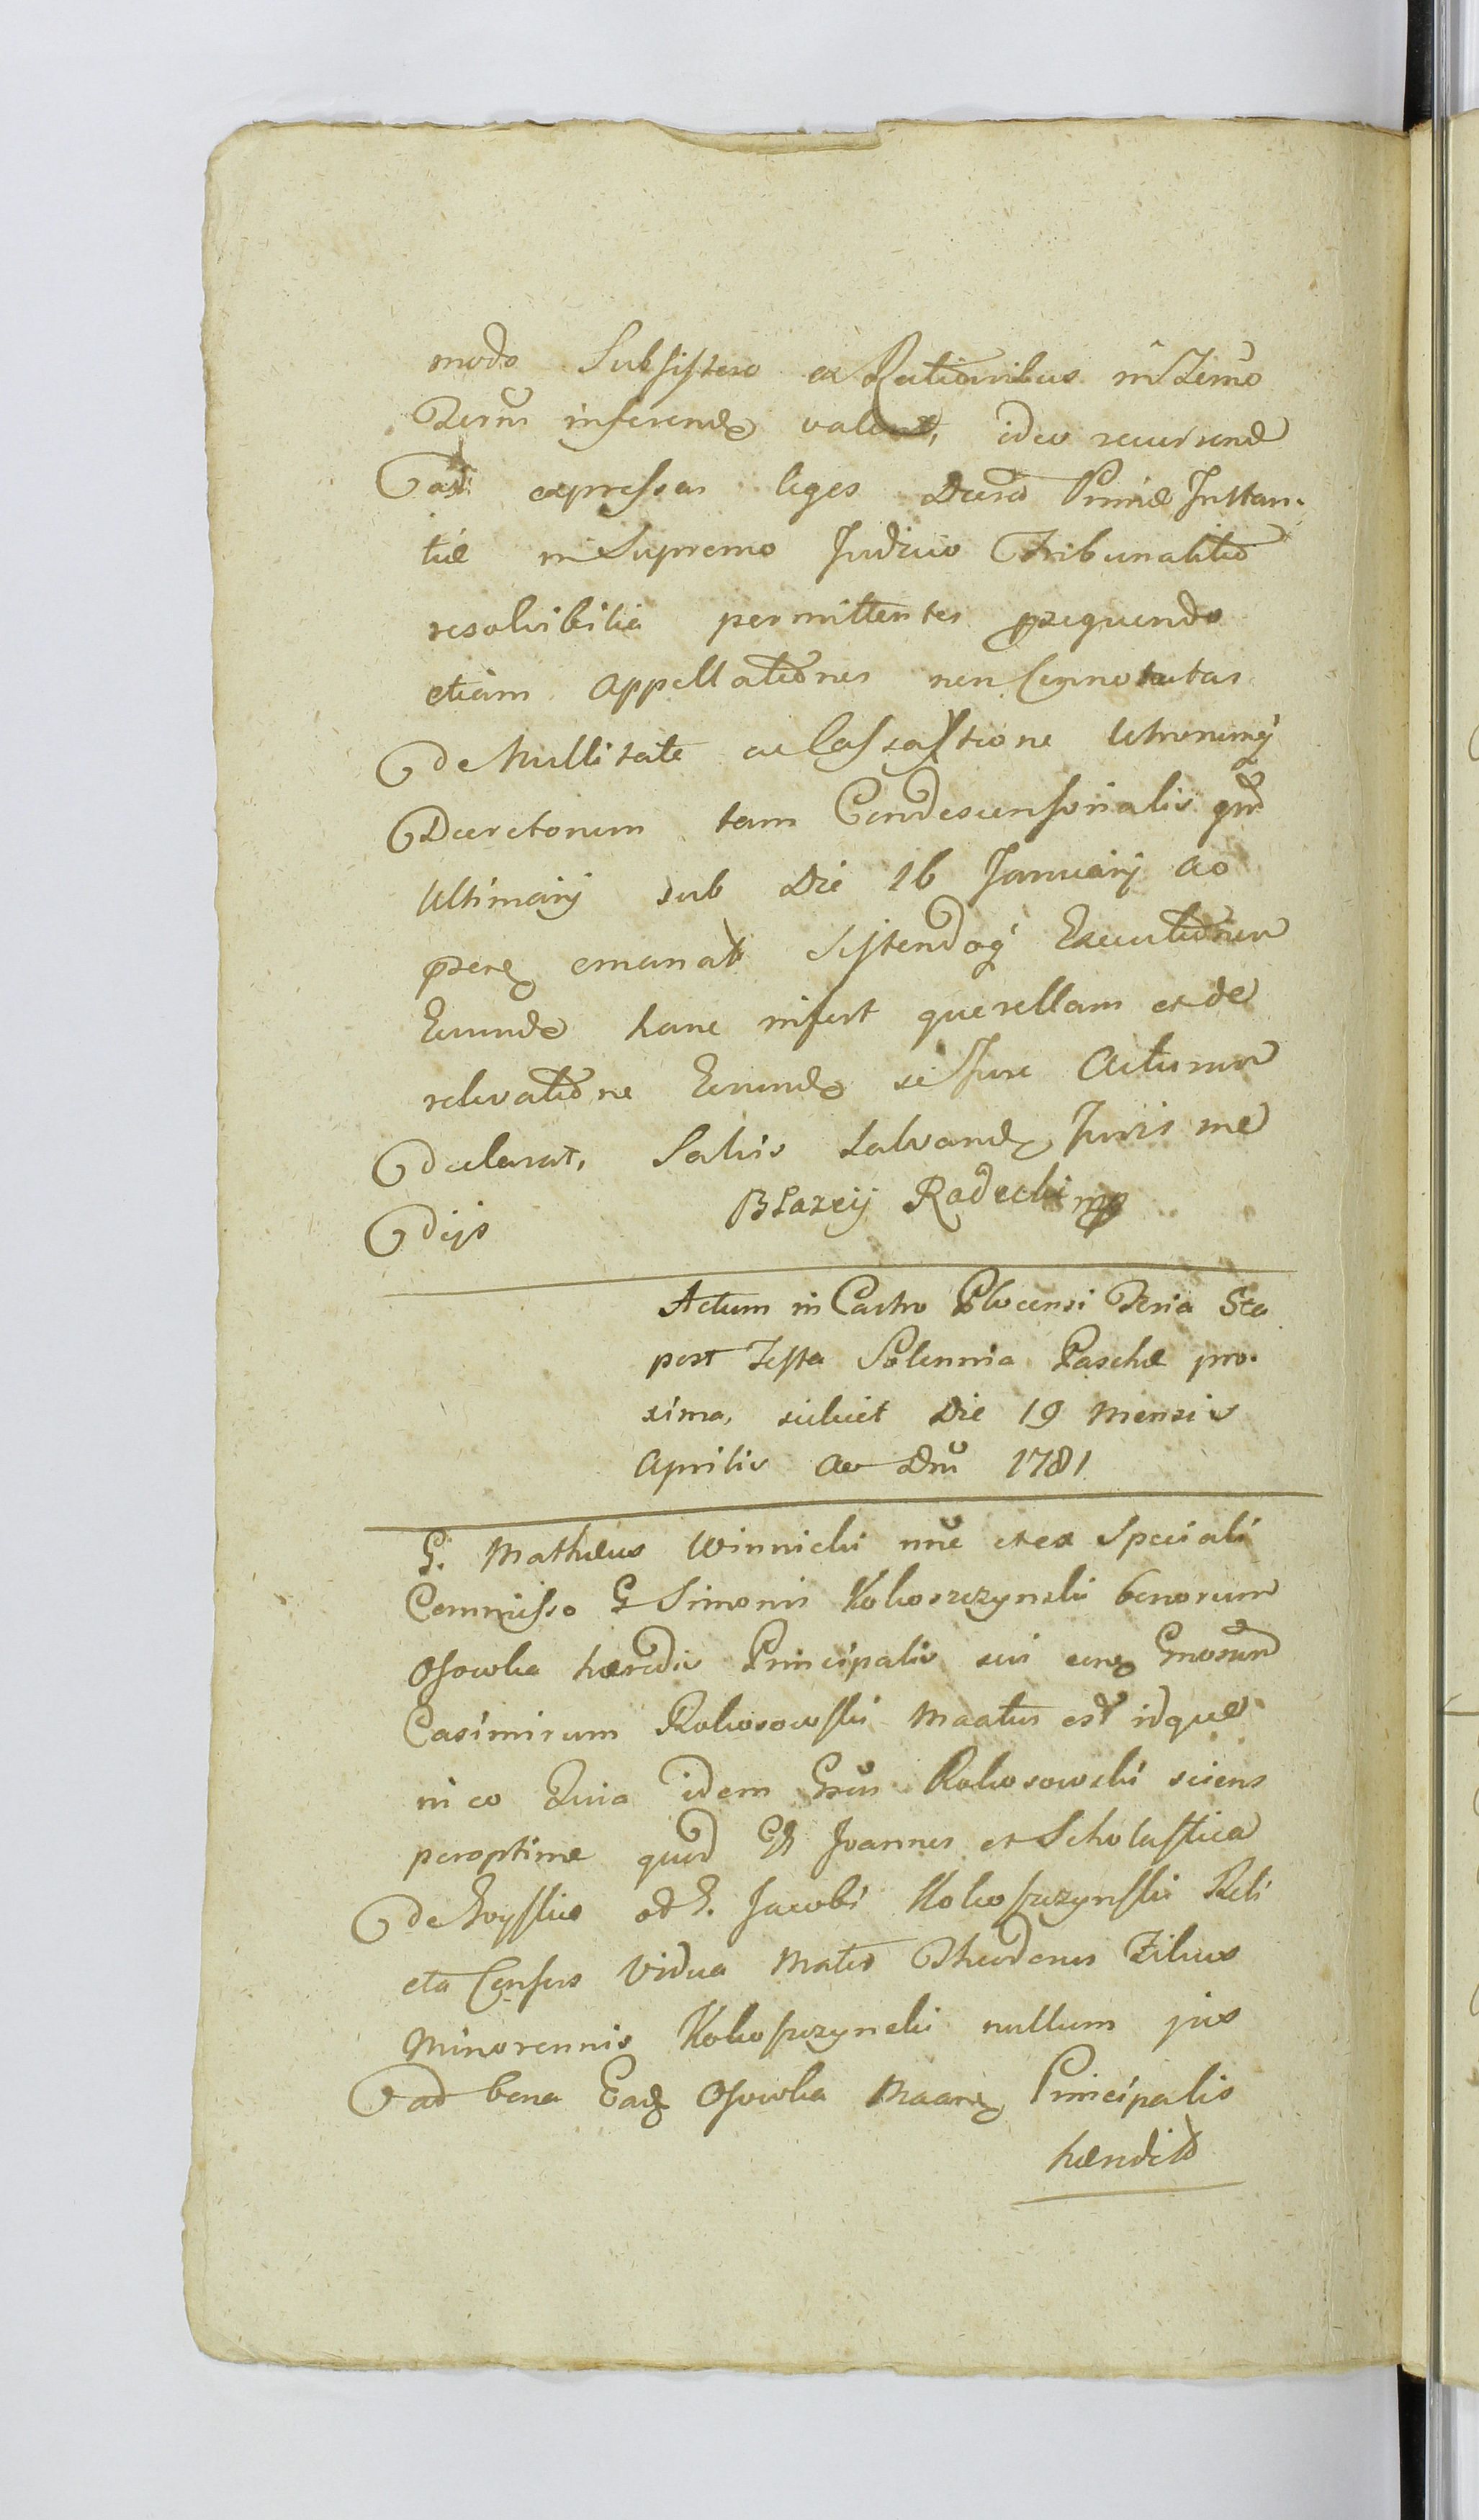 modo Subsistere ex Rationibus in Termo
Term inferend valent, ideo recurrend
ad expressas leges Decreta Primae Instan-
tiae in Supremo Judicio Tribunalitio
resolvibilia permittentes prosequendo
etiam Appellationes non Connotatas
de Nullitate ac Cassatione Utrorumq
Decretorum tam Condescensorialis qm
Ultimarij sub Die 16 Januarij ao
praese emanat Sistendaq Executionem
Eorund hanc infert querellam et de
relevatione Eorund se Jure Acturum
declarat, Salvis Salvand Juris me
dijs Błazeij Radecki mp
Actum in Castro Plocensi Feria 5ta
post Festa Solennia Paschae pro-
xima, scilicet Die 19 Mensis
Aprilis Ao Dni 1781
G. Mathaeus Winnicki nne et ex Speciali
Commisso G Simonis Kokoszczynski bonorum
Osowka haeredis Principalis sui cora Gnosum
Casimirum Rokosowski Maatus est idque
in eo Quia idem Gnsus Rokosowski sciens
peroptime quod GG Joannes et Scholastica
de olim G. Jacobi Kokoszczynski Reli
cta Consors Vidua Mater Theodorus Filius
Minorennis Kokoszczynski nullum jus
ad bona Ead Osowka Maan Principalis
haeredit